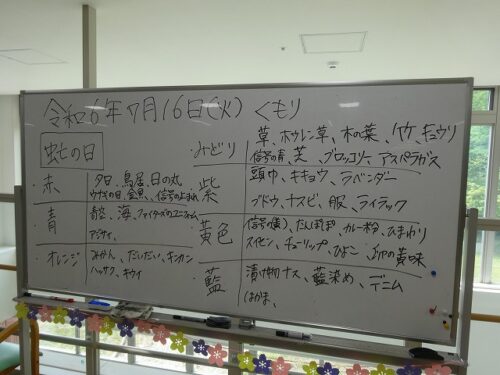 令和6年7月16日(火) くもり
虹の日
・みどり 草、ホウレン草、木の葉、竹、キュウリ
信号の青、芝、ブロッコリー、アスパラガス
・赤 夕日、鳥居、日の丸
ウサギの目、金魚、信号の止まれ
・紫 頭巾、キキョウ、ラベンダー
ブドウ、ナスビ、服、ライラック
・青 青空、海、ファイターズのユニフォーム
アジサイ、
・黄色 信号(黄)、たんぽぽ、カレー粉、ひまわり
スイセン、チューリップ、ひよこ、卵の黄味
・オレンジ みかん、だいだい、キンカン
ハッサク、キウイ
・藍 漬け物ナス、藍染め、デニム
はかま、